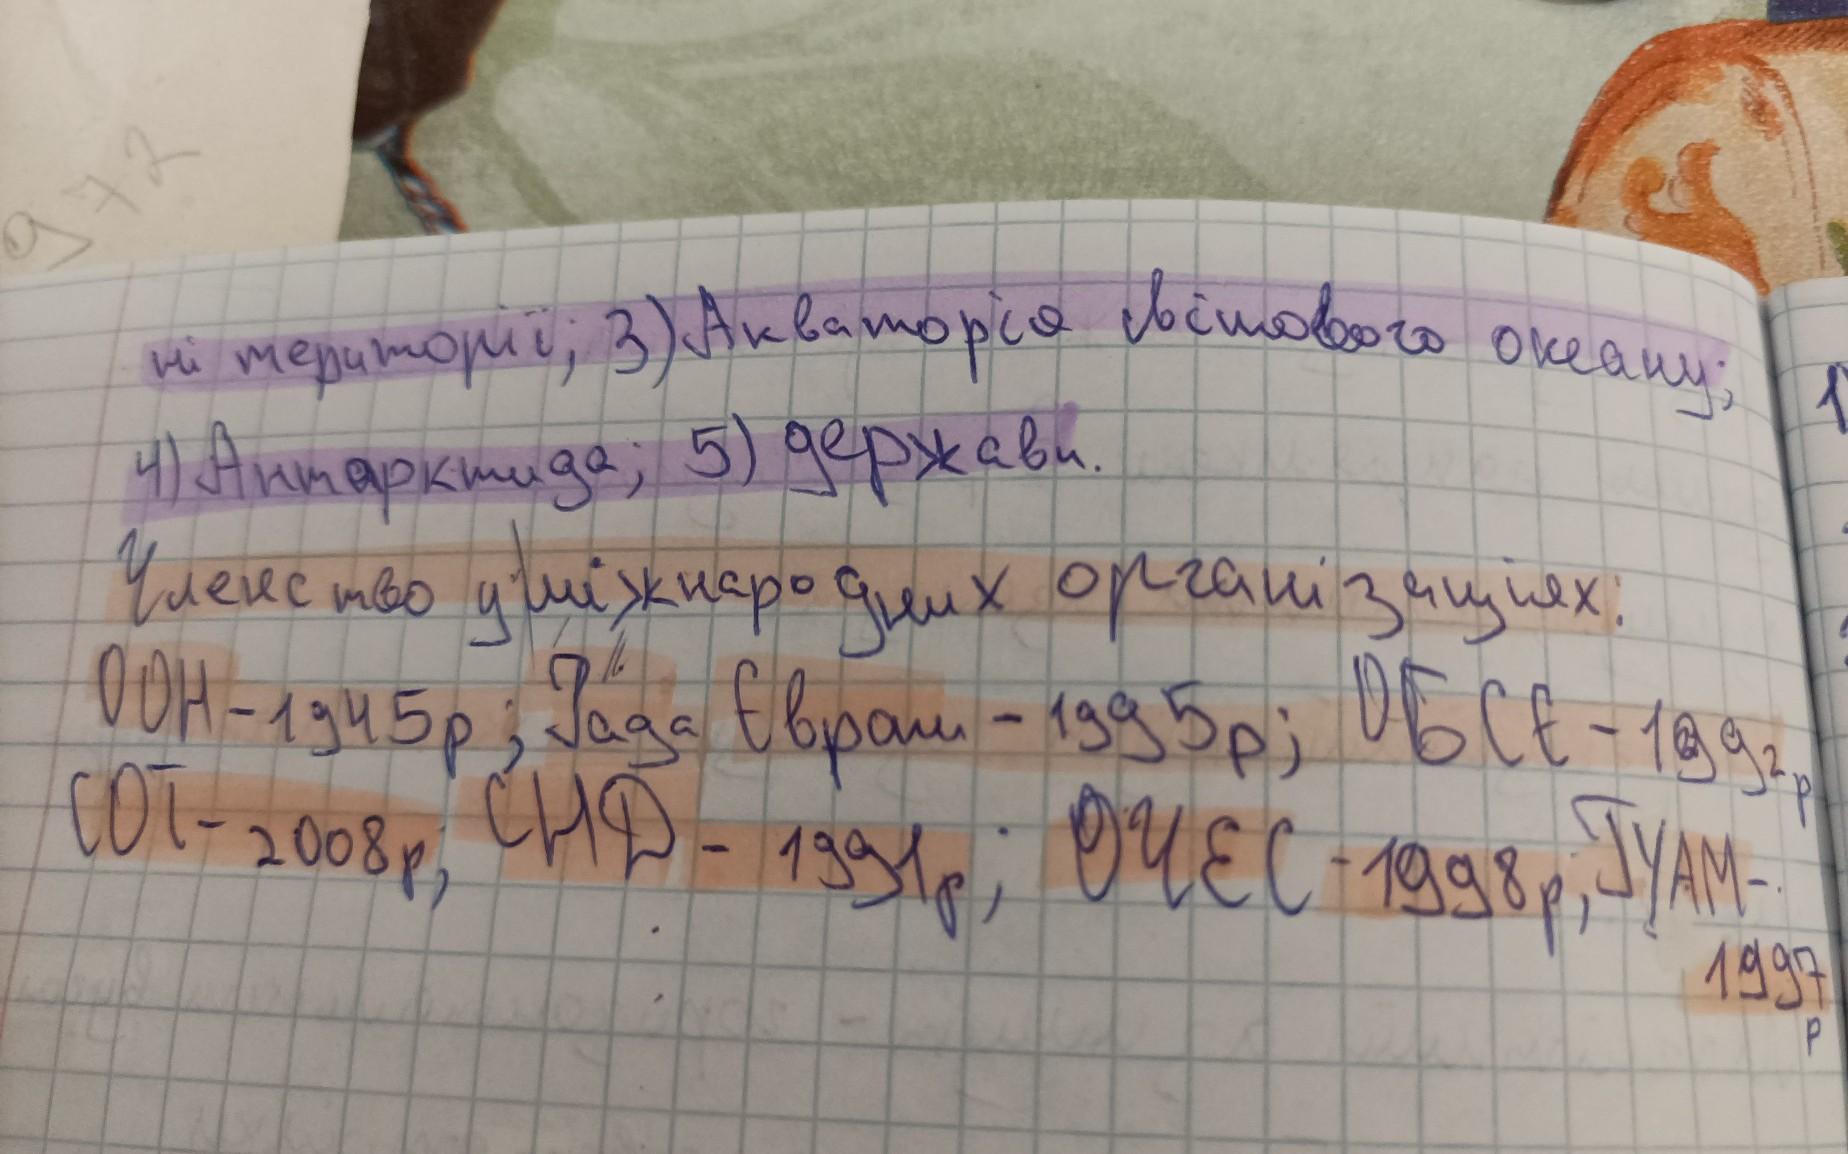 972
ні території; 3) Акваторія Світового океану;
4) Антарктида; 5) держави.
Членство у міжнародних організаціях:
ООН - 1945р; Рада Європи - 1995р; ОБСЄ - 1992р
СОТ - 2008р; СНД - 1991р; ОЧЕС - 1998р; ГУАМ -
1997р